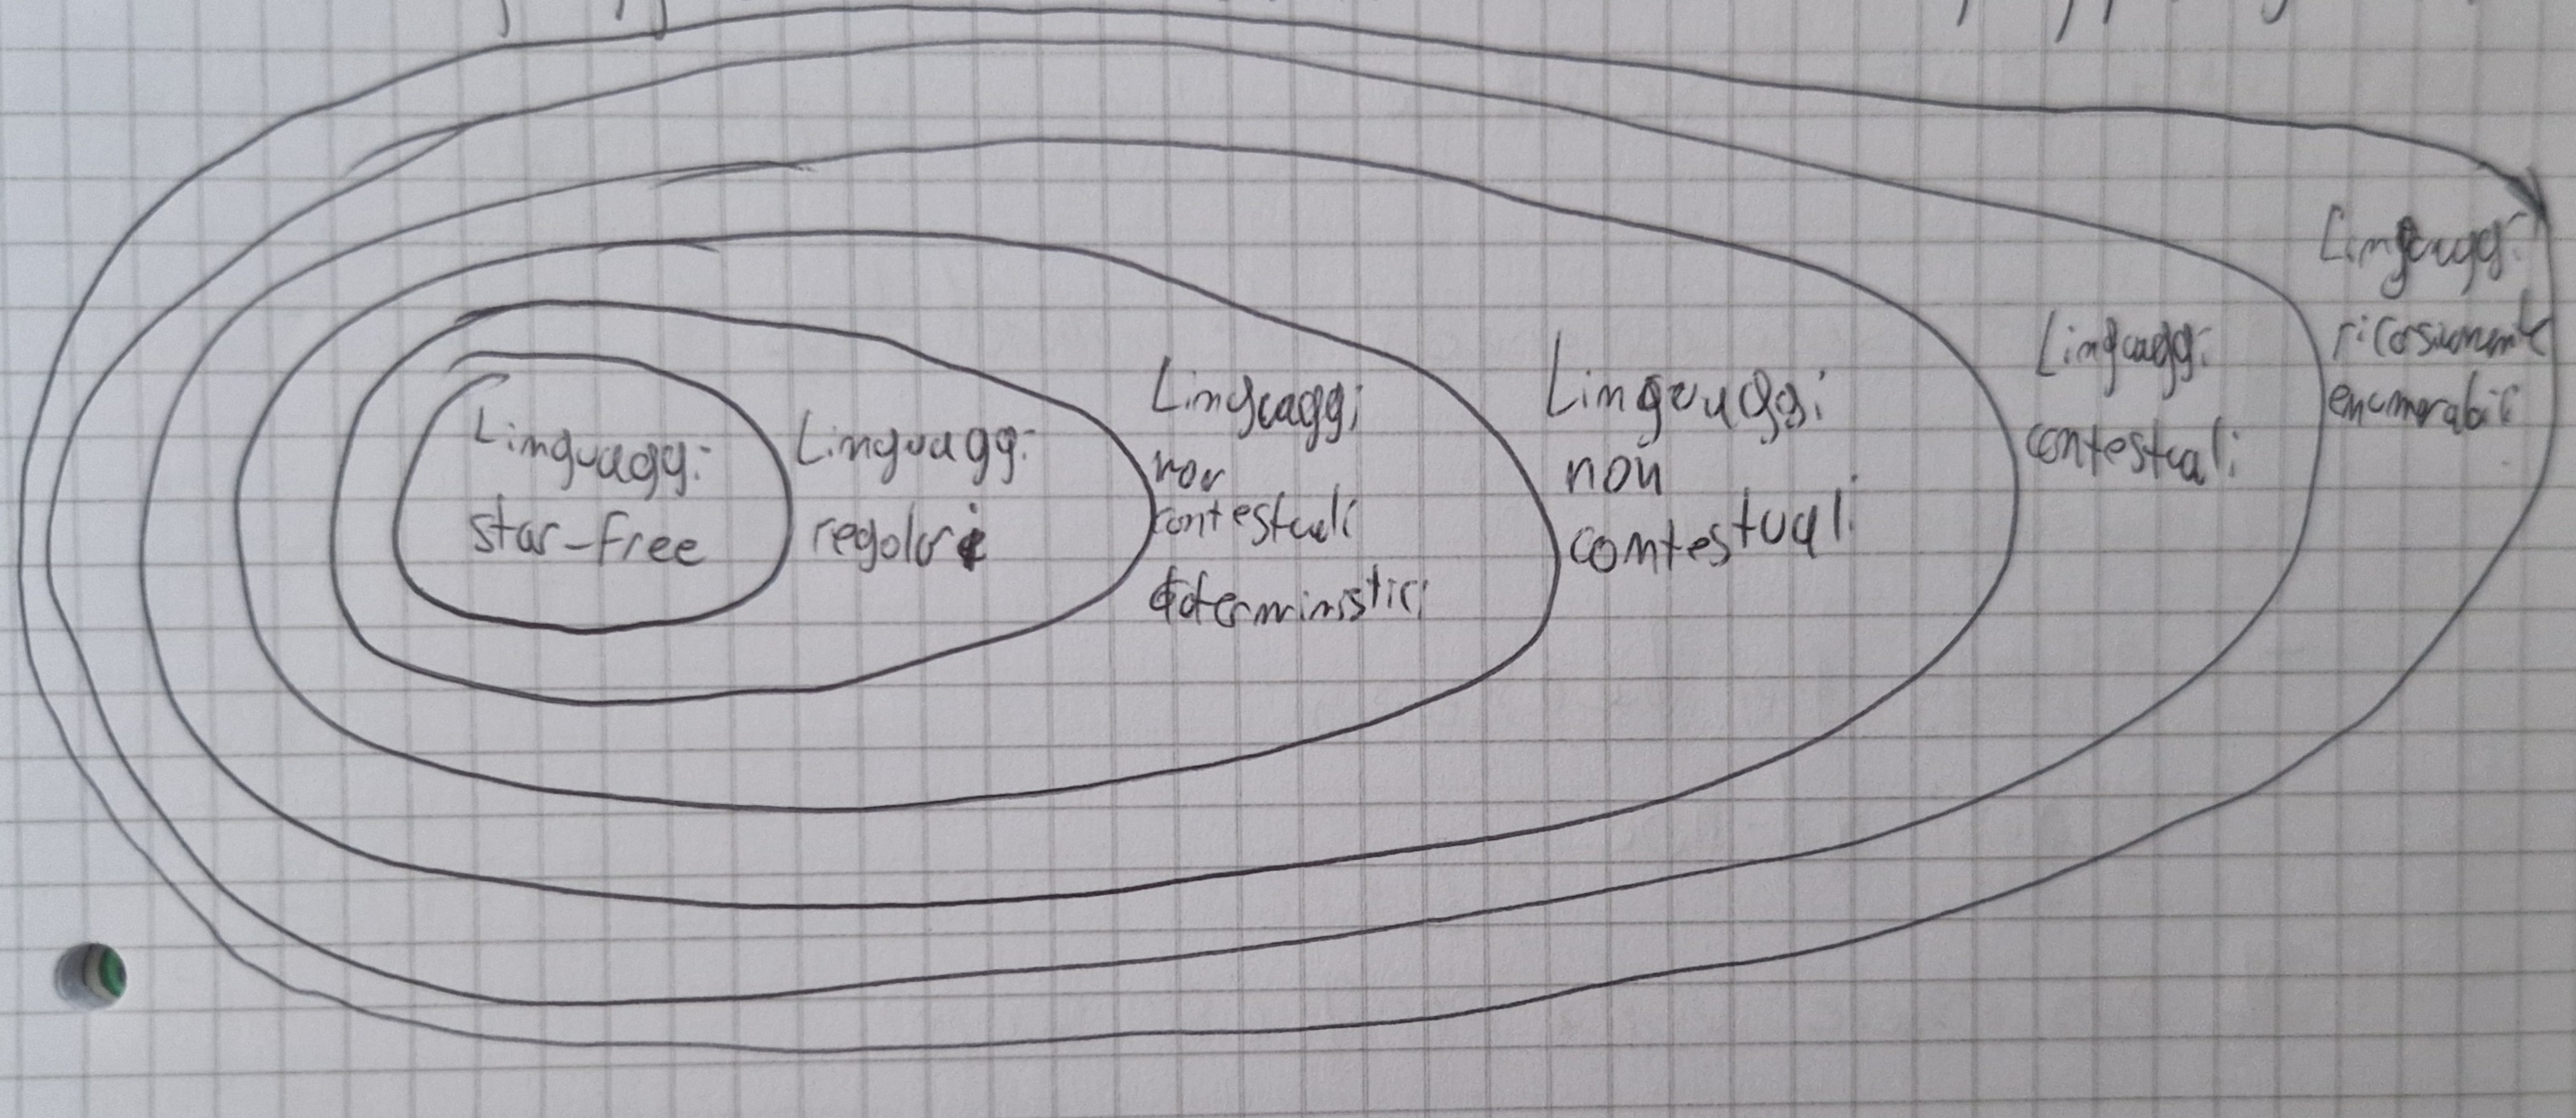 Linguaggi
star-free
Linguaggi
regolari
Linguaggi
non
contestuali
deterministici
Linguaggi
non
contestuali
Linguaggi
contestuali
Linguaggi
enumerabili